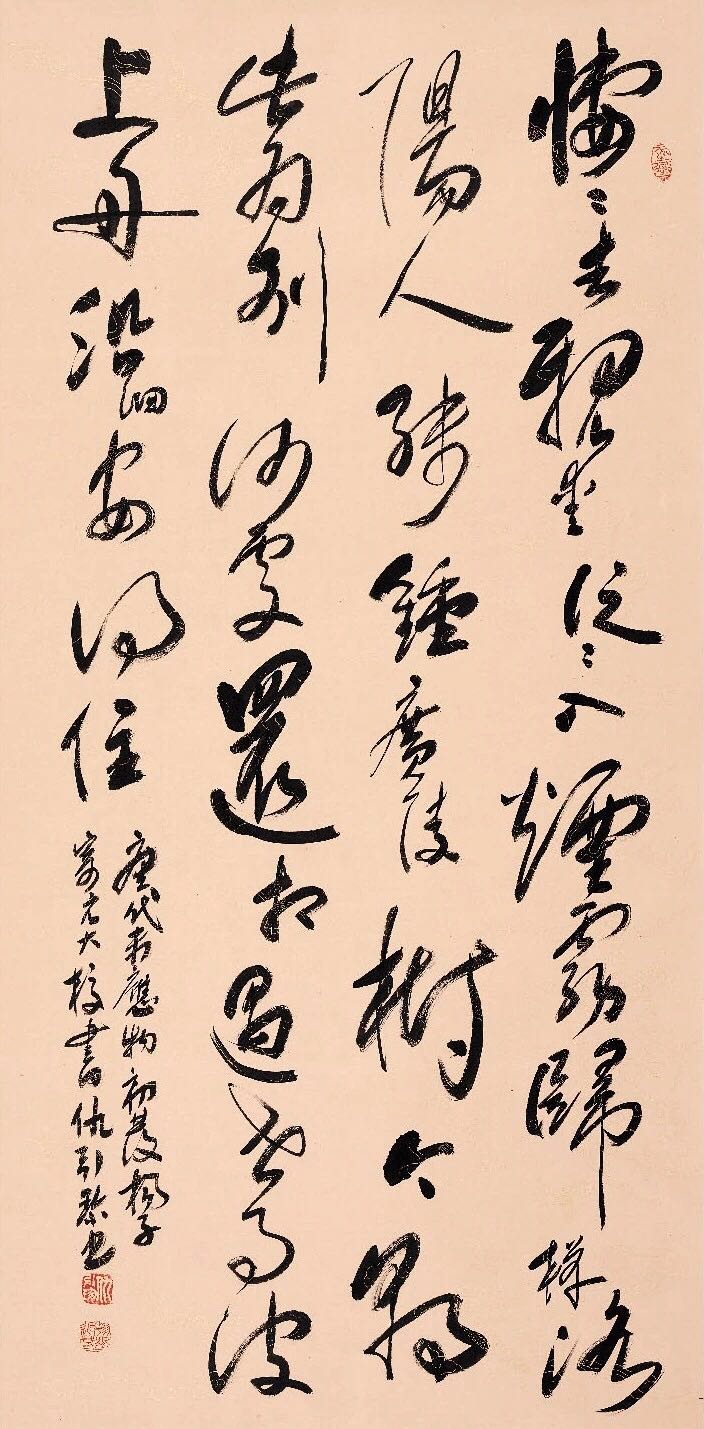 悽〻去親愛泛〻入煙霧歸棹洛
陽人殘鍾廣陵樹今朝
此為別何處還相遇世事波
上舟沿洄安得住
唐代韋應物初發楊子
寄元大校書